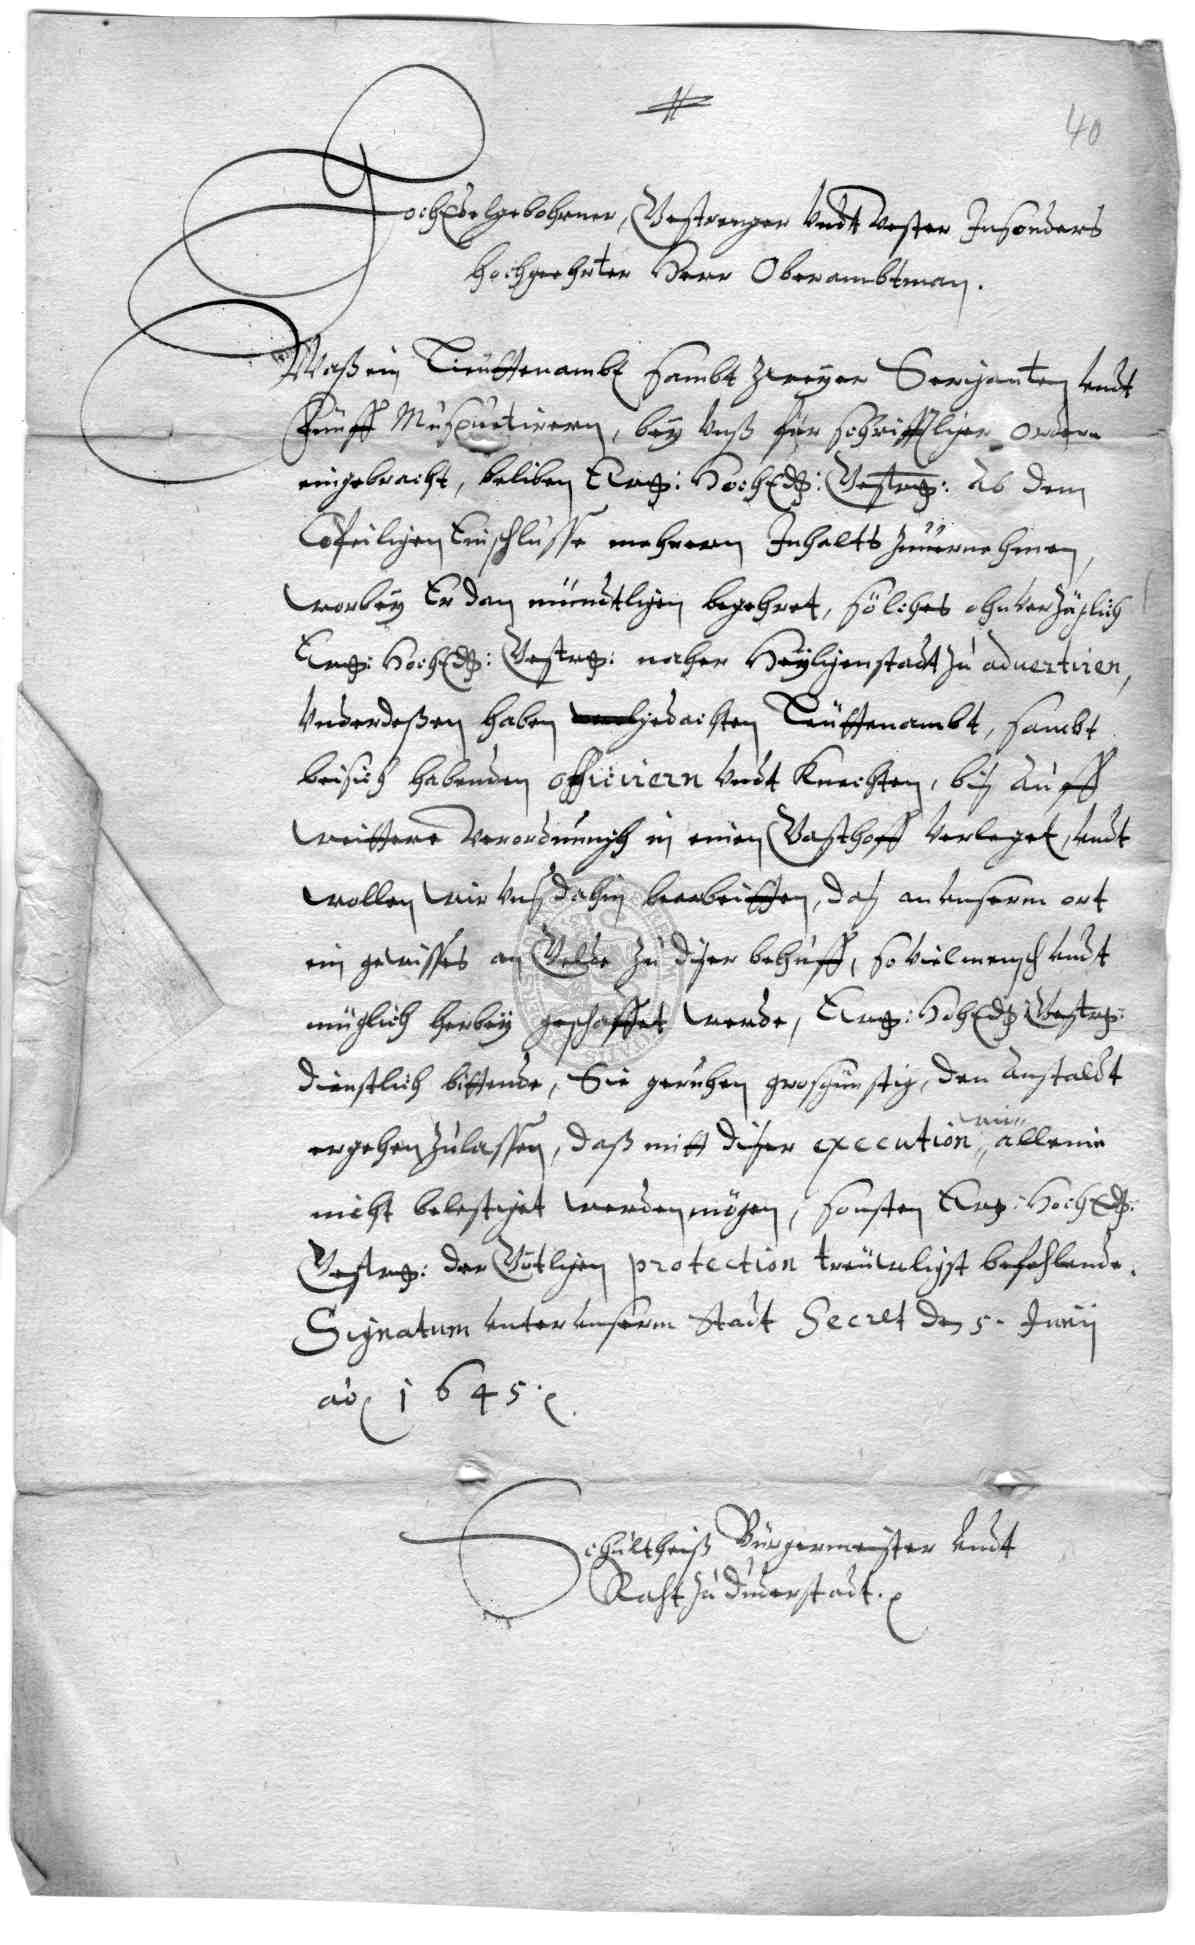 40
HochEdelgebohrner, Gestrenger Undt Vester Insonders
hochgeehrter Herr Oberambtman.
Waß ein Leuttenambt sambt zweyer Serianten undt
Fünff Musquetirern, bey Unß für schrifftliche Ordern
eingebracht, beliben Ewg: HochEdg: Gestrg: Ab dem
beiligen Einschlusse mehrern Inhalts Zuvernehmen,
worbey Er dan mündtligen begehret, solches ohnverzüglich
Ewg: HochEdg: Gestrg: naher Heyligenstadt zu advertiren,
Underdeßen haben gedachten Leuttenambt, sambt
beisich habenden officiern Undt Knechten, biß Auff
weittere verordnungh in einen Gasthoff Verleget, undt
wollen wir Unß dahin bearbeitten, daß an unserm ort
ein gewisses an Gelde zu diser behuff, so viel mensch undt
müglich herbey geschaffet werde, Ewg: HohEdg Gestrg:
dienstlich bittende, Sie geruhen großgünstig, den Anstaldt
ergehen zulassen, daß mitt diser execution wir alleine
nicht belestiget werden mögen, sonsten Ewg: HochEdg:
Gestrg: der Götligen protection treuwligst befehlende.
Signatum unter unserm Stadt Secret den 5. Junij
ao 1645.
Schultheiß Bürgermeister undt
Raht zu Duderstadt.